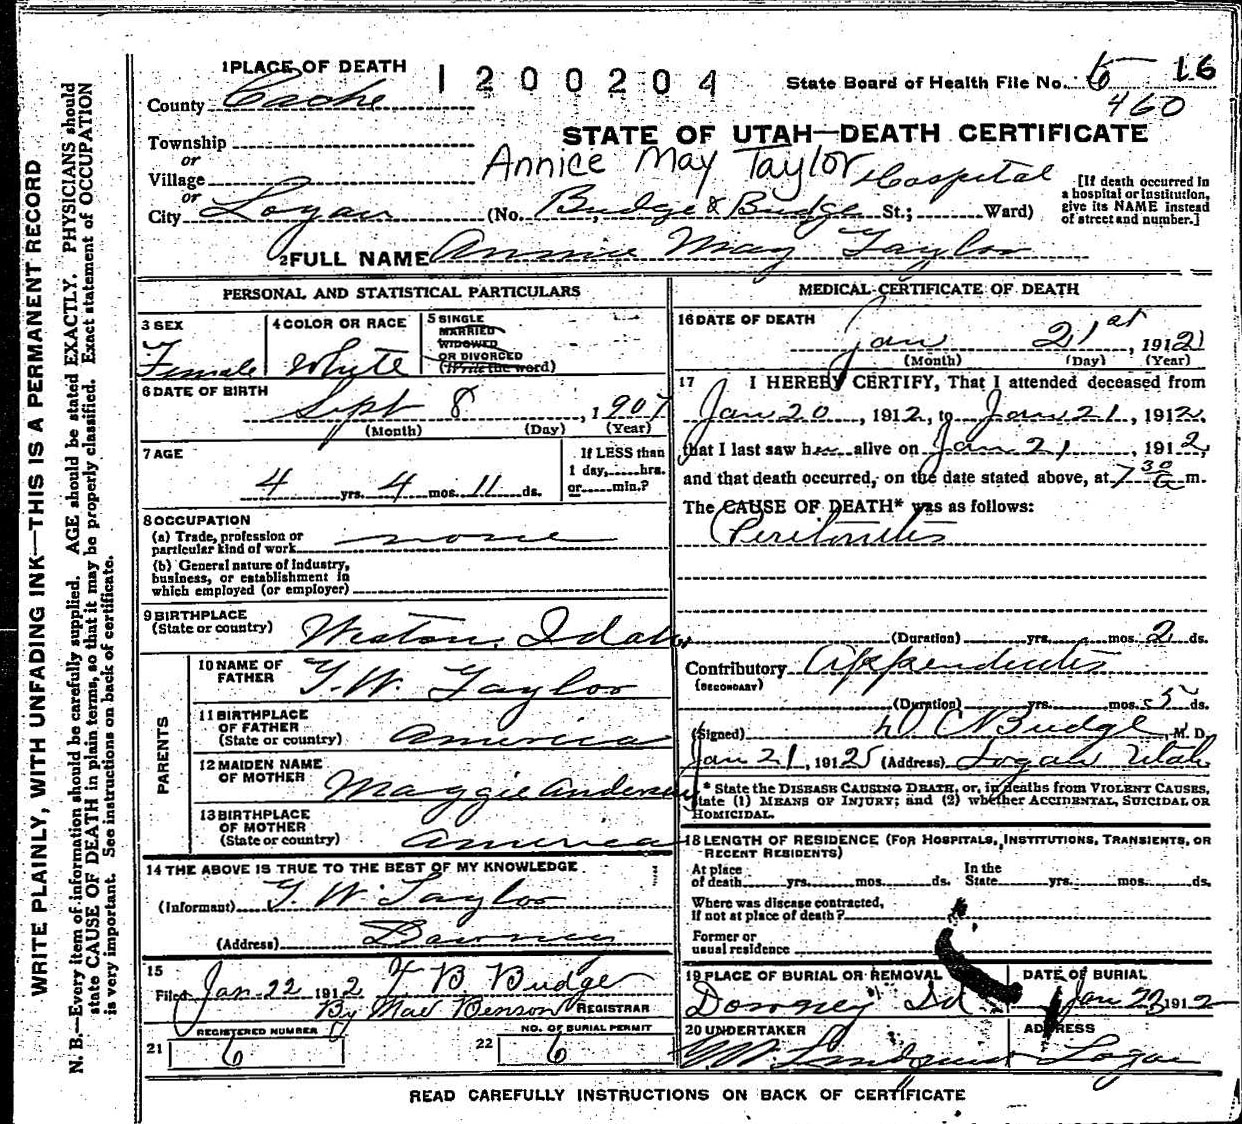 1 PLACE OF DEATH
1200204
State Board of Health File No. 6 16
460
County Cache
STATE OF UTAH—DEATH CERTIFICATE
Township
or
Village
or
Annice May Taylor
Hospital
City Logan (No. Budge & Budge St.; Ward)
[If death occurred in
a hospital or institution,
give its NAME instead
of street and number.]
2 FULL NAME Annie May Taylor
PERSONAL AND STATISTICAL PARTICULARS
3 SEX
Female
4 COLOR OR RACE
Whyte
5 SINGLE
MARRIED
WIDOWED
OR DIVORCED
(Write the word)
6 DATE OF BIRTH
Sept 8, 1907
(Month) (Day) (Year)
7 AGE
4 yrs. 4 mos. 11 ds.
If LESS than
1 day, hrs.
or min.?
8 OCCUPATION
(a) Trade, profession or
particular kind of work none
(b) General nature of Industry,
business, or establishment in
which employed (or employer)
9 BIRTHPLACE
(State or country) Weston, Idaho
PARENTS
10 NAME OF
FATHER T. W. Taylor
11 BIRTHPLACE
OF FATHER
(State or country) America
12 MAIDEN NAME
OF MOTHER Maggie Andersen
13 BIRTHPLACE
OF MOTHER
(State or country) America
14 THE ABOVE IS TRUE TO THE BEST OF MY KNOWLEDGE
(Informant) T. W. Taylor
(Address)
15
Filed Jan 22 1912 T B Budge
By Mae Benson REGISTRAR
REGISTERED NUMBER
21 6
NO. OF BURIAL PERMIT
22 6
MEDICAL CERTIFICATE OF DEATH
16 DATE OF DEATH
Jan 21st, 1912
(Month) (Day) (Year)
17 I HEREBY CERTIFY, That I attended deceased from
Jan 20, 1912, to Jan 21, 1912,
that I last saw her alive on Jan 21, 1912,
and that death occurred, on the date stated above, at 7 30 a m.
The CAUSE OF DEATH* was as follows:
Peritonitis
(Duration) yrs. mos. 2 ds.
Contributory Appendicitis
(SECONDARY)
(Duration) yrs. mos. 5 ds.
(Signed) D C Budge, M. D.
Jan 21, 1912 (Address) Logan Utah
* State the DISEASE CAUSING DEATH, or, in deaths from VIOLENT CAUSES,
state (1) MEANS OF INJURY; and (2) whether ACCIDENTAL, SUICIDAL OR
HOMICIDAL.
18 LENGTH OF RESIDENCE (FOR HOSPITALS, INSTITUTIONS, TRANSIENTS, OR
RECENT RESIDENTS)
At place
of death yrs. mos. ds.
In the
State yrs. mos. ds.
Where was disease contracted,
if not at place of death?
Former or
usual residence
19 PLACE OF BURIAL OR REMOVAL
Downey Id
DATE OF BURIAL
Jan 23 1912
20 UNDERTAKER
Lindquist
ADDRESS
Logan
READ CAREFULLY INSTRUCTIONS ON BACK OF CERTIFICATE
WRITE PLAINLY, WITH UNFADING INK—THIS IS A PERMANENT RECORD
N. B.—Every item of information should be carefully supplied. AGE should be stated EXACTLY. PHYSICIANS should
state CAUSE OF DEATH in plain terms, so that it may be properly classified. Exact statement of OCCUPATION
is very important. See instructions on back of certificate.